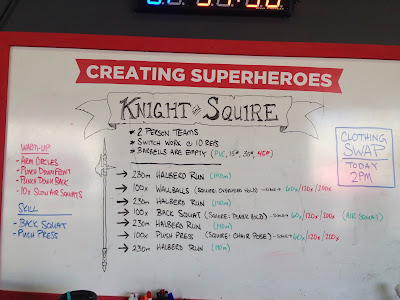 CREATING SUPERHEROES
KNIGHT AND SQUIRE
* 2 PERSON TEAMS
* SWITCH WORK @ 10 REPS
* BARBELLS ARE EMPTY (PVC, 15#, 30#, 45#)
→ 230m HALBERD RUN (190m)
→ 100x WALLBALLS (SQUIRE: OVERHEAD HOLD) 60x/120x/200x
→ 230m HALBERD RUN (190m)
→ 100x BACK SQUAT (SQUIRE: PLANK HOLD) 60x/120x/200x (AIR SQUAT)
→ 230m HALBERD RUN (190m)
→ 100x PUSH PRESS (SQUIRE: CHAIR POSE) 60x/120x/200x
→ 230m HALBERD RUN (190m)
WARM-UP
- ARM CIRCLES
- PUNCH DOWN FRONT
- PUNCH DOWN BACK
- 10x SLOW AIR SQUATS
SKILL
- BACK SQUAT
- PUSH PRESS
CLOTHING
SWAP
TODAY
2PM